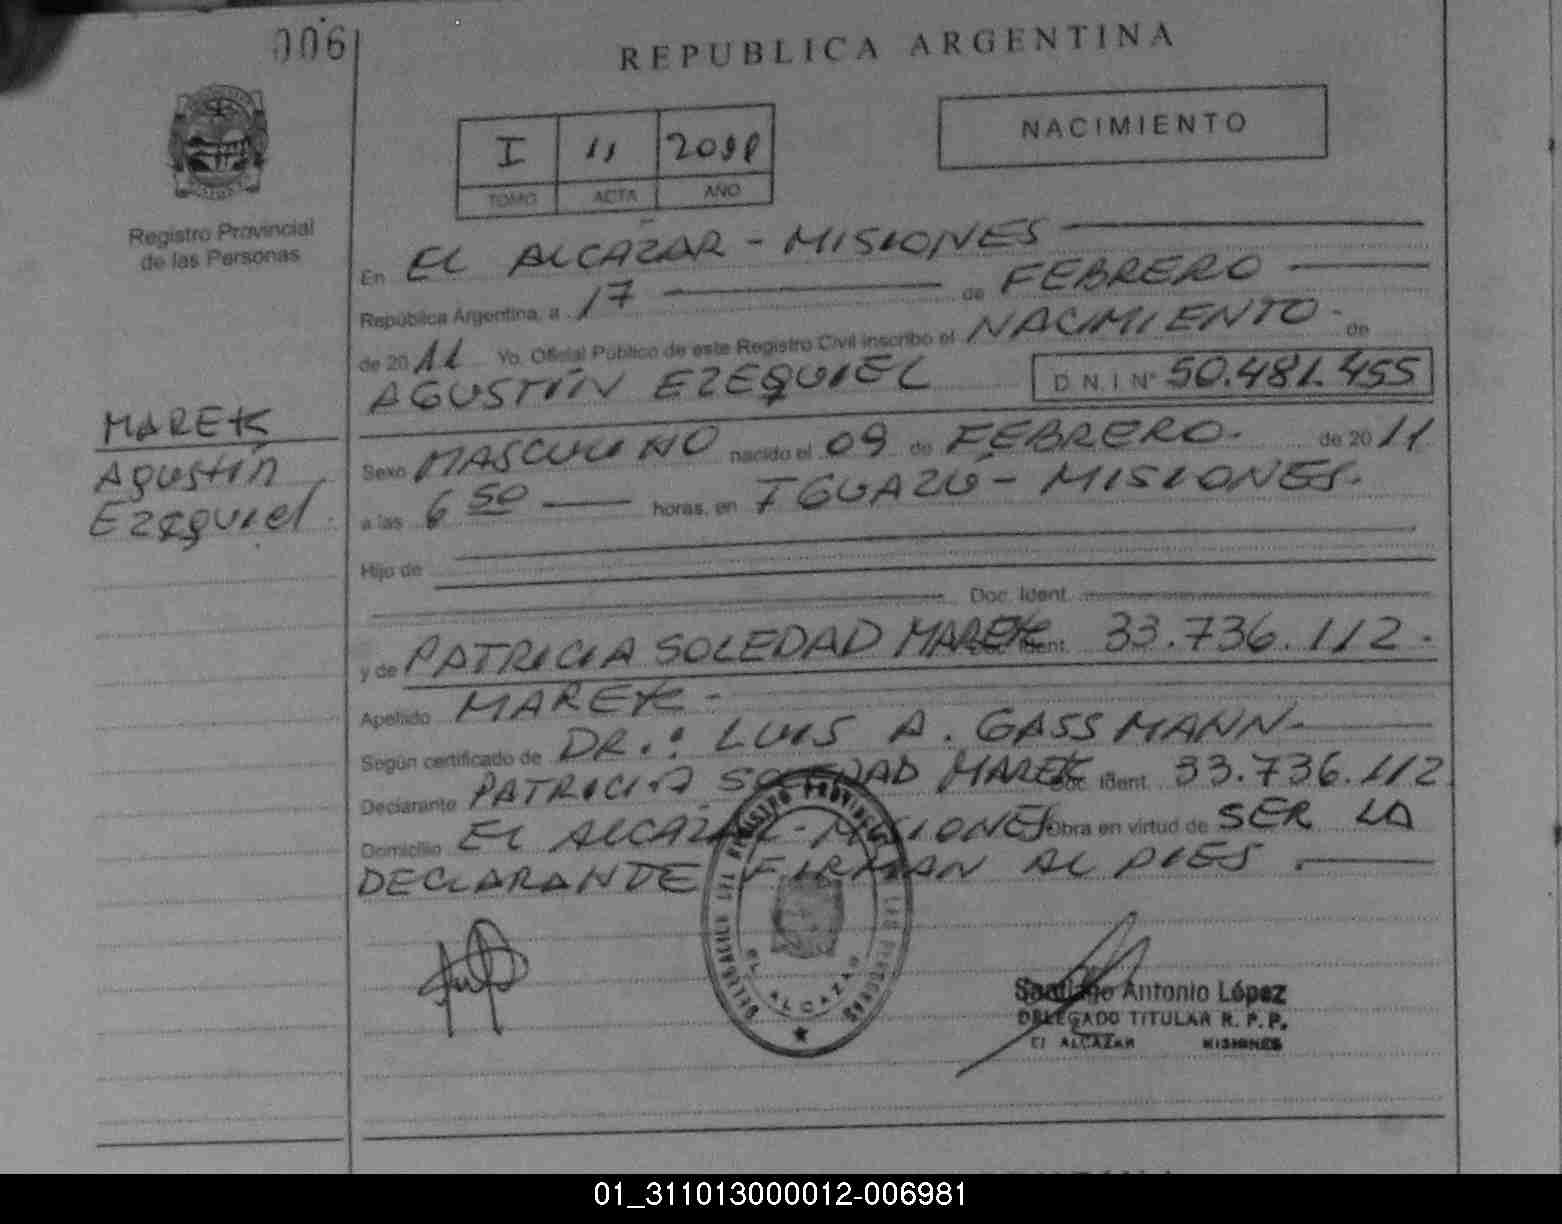 006
REPUBLICA ARGENTINA
I 11 2011
TOMO ACTA AÑO
NACIMIENTO
Registro Provincial
de las Personas
En EL ALCAZAR - MISIONES
República Argentina, a 17 de FEBRERO
de 2011 Yo, Oficial Público de este Registro Civil inscribo el NACIMIENTO - de
AGUSTIN EZEQUIEL D N I Nº 50.481.455
MAREK
AGUSTÍN
EZEQUIEL.
Sexo MASCULINO nacido el 09 de FEBRERO - de 2011
a las 6 50 horas, en IGUAZÚ - MISIONES.
Hijo de
Doc. Ident.
y de PATRICIA SOLEDAD MAREK Ident. 33.736.112.
Apellido MAREK -
Según certificado de DR.: LUIS A. GASSMANN
Declarante PATRICIA SOLEDAD MAREK Doc. Ident. 33.736.112
Domicilio EL ALCAZAR - MISIONES Obra en virtud de SER LA
DECLARANTE FIRMAN AL PIES.
DELEGACION DEL REGISTRO PROVINCIAL DE LAS PERSONAS
EL ALCAZAR
Santiago Antonio López
DELEGADO TITULAR R. P. P.
El ALCAZAR MISIONES
01_311013000012-006981